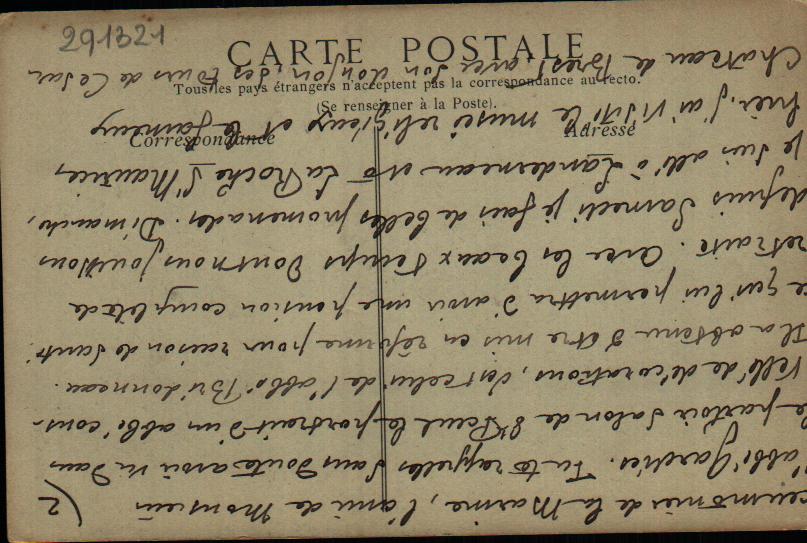 291321
CARTE POSTALE
Tous les pays étrangers n'acceptent pas la correspondance au recto.
(Se renseigner à la Poste).
Correspondance
Adresse
2)
aumônier de la Marine, l'ami de Monsieur
l'abbé Tu te rappelles sans doute avoir vu dans
le parloir salon de St Paul le portrait d'un abbé cons-
tellé de décorations, c'est celui de l'abbé Bridonneau.
Il a obtenu d'être mis en réforme pour raison de santé
ce qui lui permettra d'avoir une pension complète de
retraite. Avec les beaux temps dont nous jouissons
depuis Samedi je fais de belles promenades. Dimanche,
je suis allé à Landerneau et à La Roche St Maurice,
hier, j'ai visité le musée religieux et le fameux
Chateau de Brest avec son donjon, ses tours de César